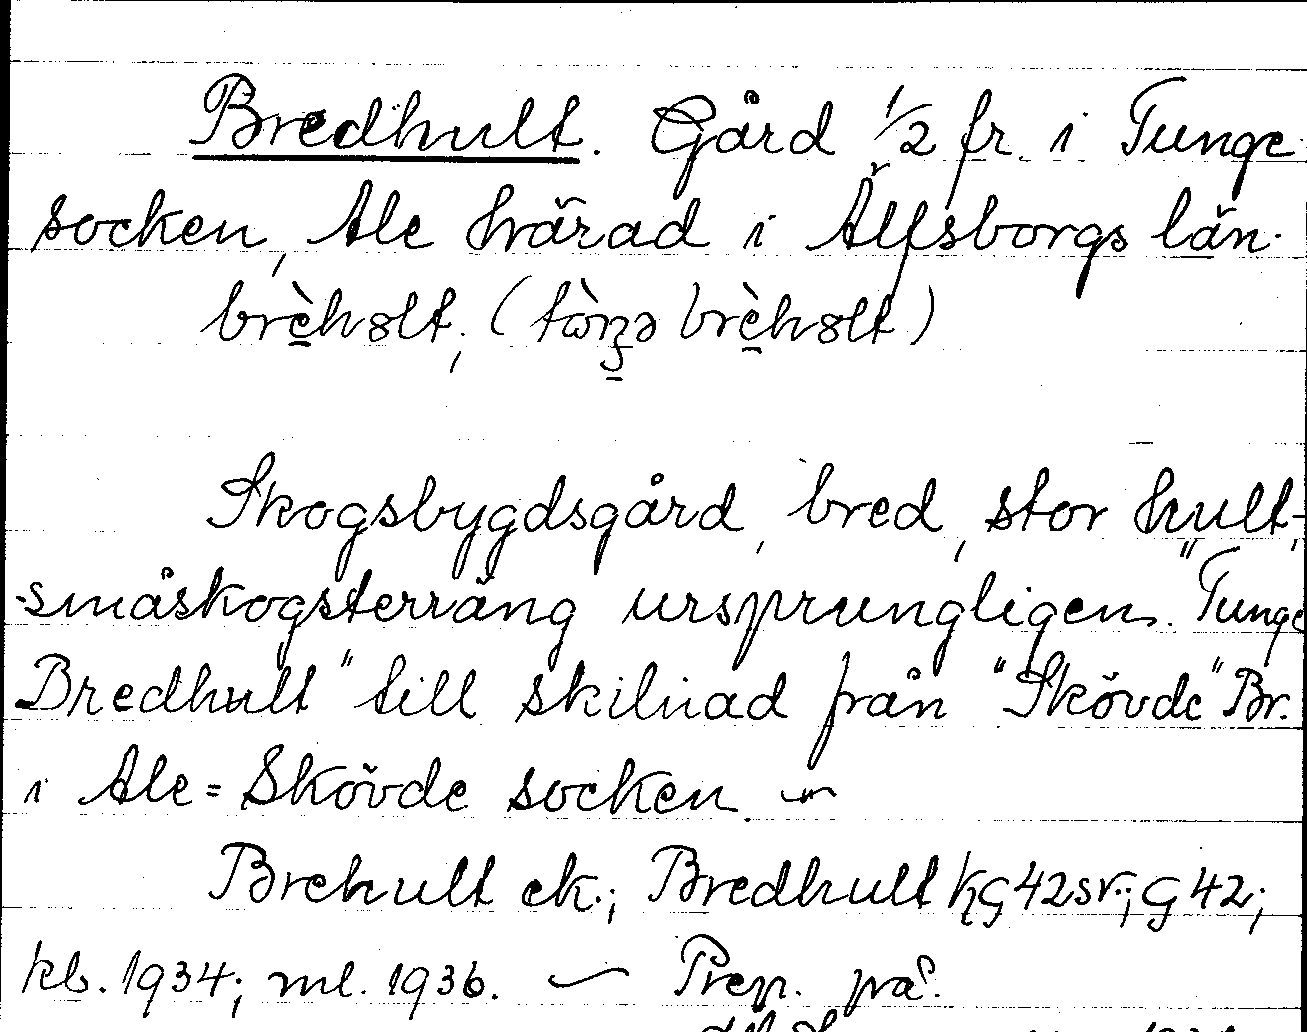 Bredhult. Gård 1/2 fr. i Tunge
socken, Ale härad i Älfsborgs län.
brèhɷlt, (tɷ̀nʒə brèhɷlt)
Skogsbygdsgård, bred, stor hult-,
-småskogsterräng ursprungligen. "Tunge
Bredhult" till skilnad från "Skövde" Br.
i Ale=Skövde socken. ~
Brehult ek.; Bredhult kG42sv.; G 42;
kb. 1934; ml. 1936. — Prep. på.